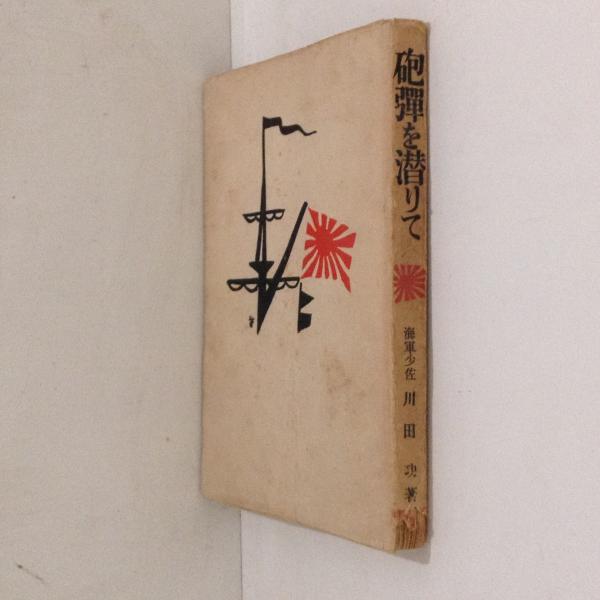 砲彈を潜りて
海軍少佐 川田功著